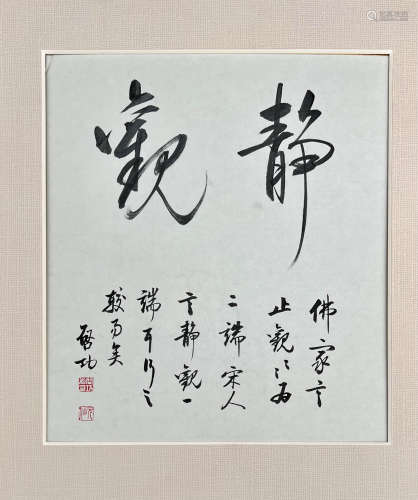 静觀
佛家言
止觀以为
二端宋人
言静觀一
端耳行之
較易矣
啓功